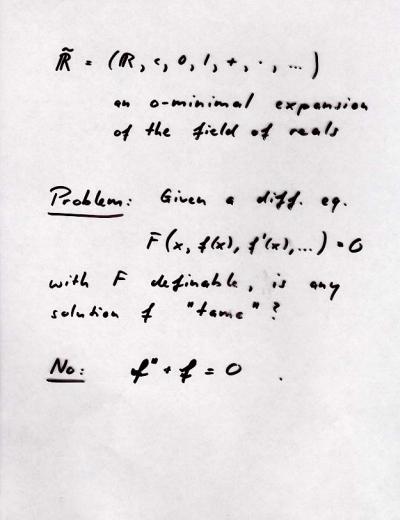 R̃ = (R, <, 0, 1, +, ·, ...)
an o-minimal expansion
of the field of reals
Problem: Given a diff. eq.
F(x, f(x), f'(x), ...) = 0
with F definable, is any
solution f "tame"?
No: f" + f = 0 .